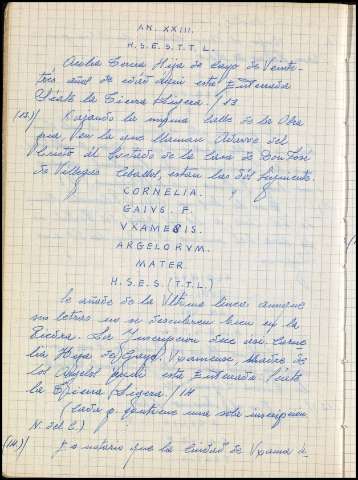 AN. XXIII.
H.S.E.S.T.T.L.
Aurelia Hija de Cayo de Veinte-
tres años de edad aqui está Enterrada
Séate la Tierra Ligera. /13
(13.)/ Bajando la misma calle de la Obra
pia, Ven la que llaman Adarve del
al costado de la Casa de Don José
de Villegas Ceballos, estan las dos siguientes.
CORNELIA.
GAIVS. F.
VXAMEBIS.
ARGELORVM.
MATER
H.S.E.S. (T.T.L.)
lo añade de la Ultima linea aunque
sus letras no se descubren bien en la
Piedra. La Inscripcion dice asi. Corne
lia Hija de Gayo. Vxamense Madre de
los está Enterrada Séate
la Tierra Ligera. / 14
(cada p. contiene una sola inscripcion
N. del C.)
(14.)/ Es notorio que la Ciudad de Vxama d-